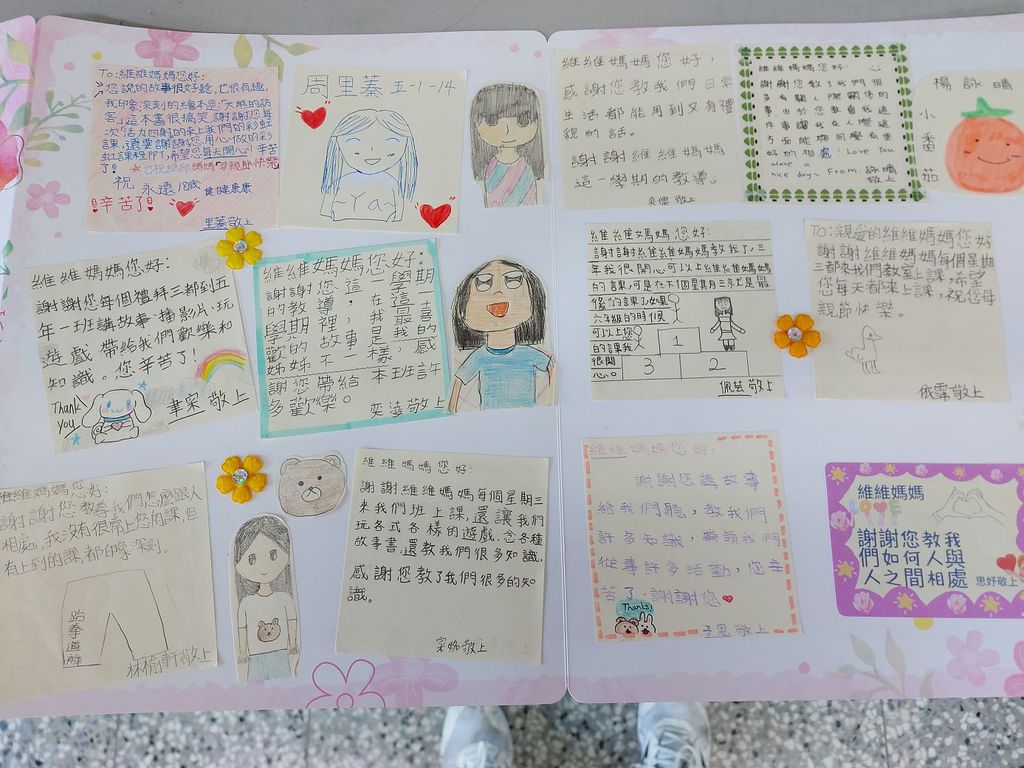 To:維維媽媽您好:
您說的故事很好聽,也很有趣,
我印象深刻的繪本是:"大熊的訪
客"這本書很搞笑,謝謝您每
次「活力四射的來上我們的彩虹
課,還要謝謝您用心做的彩
虹課程PPT,希望您每天開心!辛苦
了! ★也祝維維媽媽"母親節快樂
祝 永遠18歲 健健康康
辛苦了
里蓁敬上
周里蓁 五-1-14
Ya
維維媽媽您好:
謝謝您每個禮拜三都到五
年一班講故事、播影片、玩
遊戲 帶給我們歡樂和
知識。您辛苦了!
Thank
You
聿宷 敬上
維維媽媽您好:
謝謝您這一學期
的教導,在這
學期裡,我最喜
歡的故事是我的
姊姊不一樣,感
謝您帶給本班許
多歡樂。 奕濤敬上
維維媽媽您好:
謝謝您教導我們怎麼跟人
相處,我沒有很常上您的課,但
有上到的課,都印象深刻。
跆拳道褲
林楀軒敬上
維維媽媽您好:
謝謝維維媽媽每個星期三
來我們班上課,還讓我們
玩各式各樣的遊戲,念各種
故事書,還教我們很多知識,
感謝您教了我們很多的知
識。
敬上
維維媽媽您好,
感謝您教我們日常
生活都能用到又有禮
貌的話。
謝謝維維媽媽
這一學期的教導。
敬上
維維媽媽您好:
謝謝您教了我們很
多有關人際關係的
事,由於您教會我這
件事讓我在人際這
方面能與同學有更
好的相處!Love You
have a
nice day~ From 詠晴
敬上
楊詠晴
小番茄
維維媽媽您好:
謝謝維維媽媽教我了,三
年我很開心可以上維維媽媽
的課,可是在下個星期三
後的課了,如果
六年級的時候
可以上您
的課我
很開
心。
1
3
2
佩芸敬上
To:親愛的維維媽媽您好
謝謝維維媽媽每個星期
三都來我們教室上課,希望
您每天都來上課,祝您母
親節快樂。
依霈敬上
維維媽媽您好:
謝謝您講故事
給我們聽,教我們
許多知識,帶領我們
從事許多活動,您辛
苦了,謝謝您
Thanks!
子恩敬上
維維媽媽
LOVE
謝謝您教我
們如何人與
人之間相處
思妤敬上